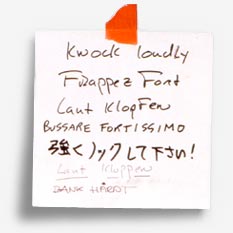 Knock loudly
Frappez Fort
Laut Klopfen
BUSSARE FORTISSIMO
強くノックして下さい!
Laut Kloppen
BANK HÅRDT